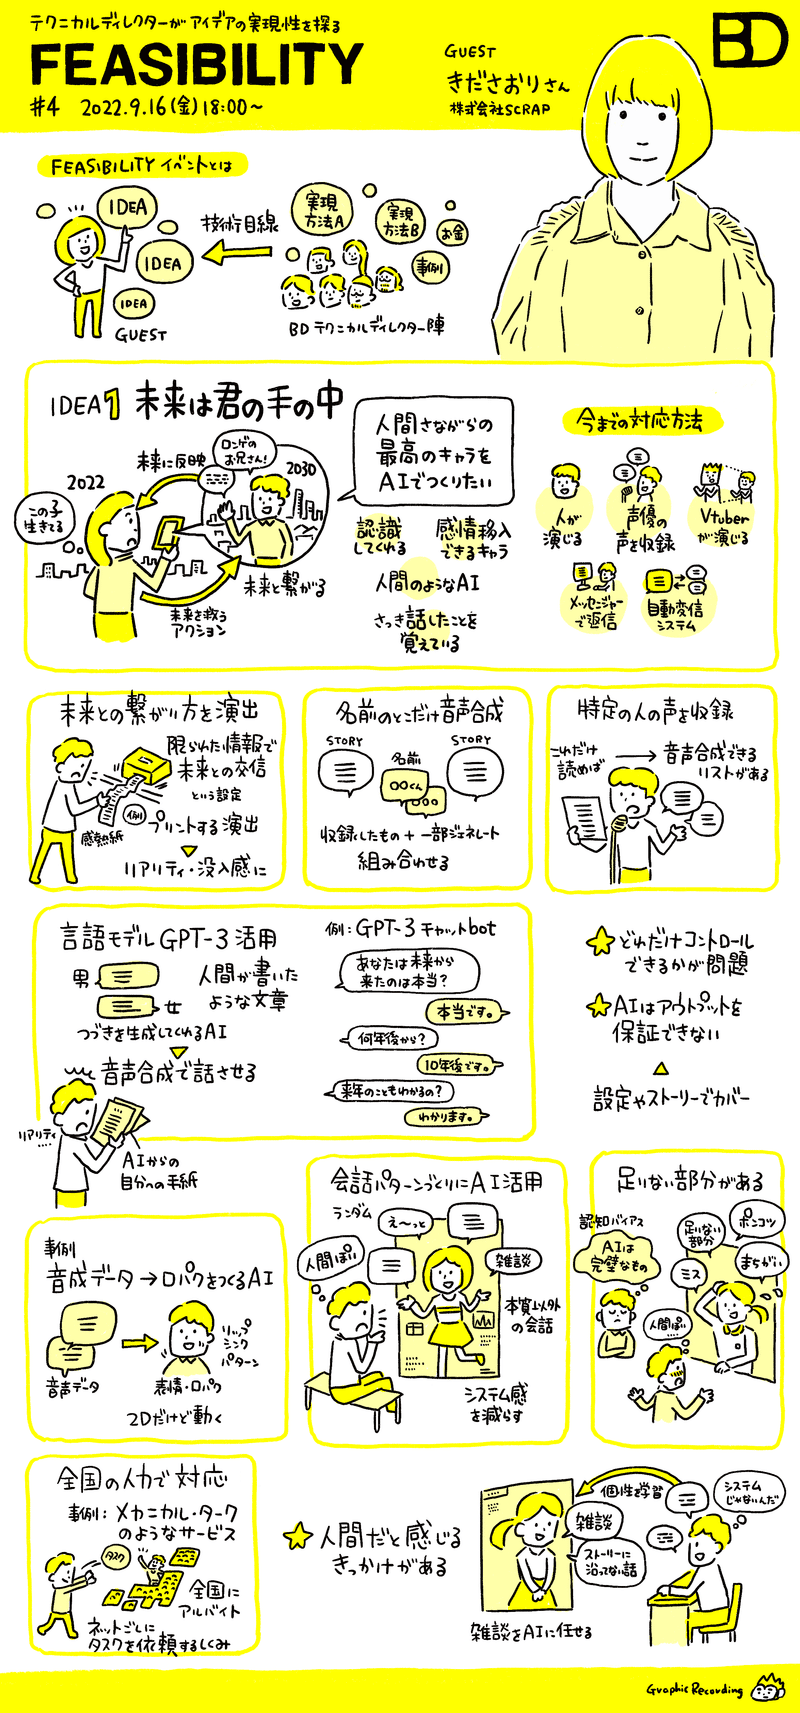 テクニカルディレクターが アイデアの実現性を探る
FEASIBILITY
#4 2022.9.16(金)18:00〜
GUEST
きださおりさん
株式会社SCRAP
BD
FEASIBILITY イベントとは
IDEA
IDEA
IDEA
GUEST
技術目線
実現
方法A
実現
方法B
お金
事例
BD テクニカルディレクター陣
IDEA1 未来は君の手の中
2022
この子
生きてる
未来に反映
ロンゲの
お兄さん!
2030
未来と繋がる
未来を救う
アクション
人間さながらの
最高のキャラを
AIでつくりたい
認識
してくれる
感情移入
できるキャラ
人間のようなAI
さっき話したことを
覚えている
今までの対応方法
人が
演じる
声優の
声を収録
Vtuber
が演じる
メッセンジャー
で返信
自動返信
システム
未来との繋がり方を演出
限られた情報で
未来との交信
という設定
例
プリントする演出
感熱紙
リアリティ・没入感に
名前のとこだけ音声合成
STORY
名前
STORY
○○くん
○○○
収録したもの + 一部ジェネレート
組み合わせる
特定の人の声を収録
これだけ
読めば
→ 音声合成できる
リストがある
言語モデル GPT-3 活用
男
女
人間が書いた
ような文章
つづきを生成してくれるAI
音声合成で話させる
リアリティ
....
AIからの
自分への手紙
例:GPT-3 チャットbot
あなたは未来から
来たのは本当?
本当です。
何年後から?
10年後です。
来年のこともわかるの?
わかります。
どれだけコントロール
できるかが問題
AIはアウトプットを
保証できない
設定やストーリーでカバー
事例
音成データ → ロパクをつくるAI
音声データ
リップ
シンク
パターン
表情・ロパク
2Dだけど動く
会話パターンづくりにAI活用
ランダム
え〜っと
人間ぽい
雑談
本質以外
の会話
システム感
を減らす
足りない部分がある
認知バイアス
AIは
完璧なもの
足りない
部分
ポンコツ
ミス
まちがい
人間ぽい
全国の人力で対応
事例:メカニカル・ターク
のようなサービス
タスク
全国に
アルバイト
ネットごしに
タスクを依頼するしくみ
人間だと感じる
きっかけがある
個性を学習
システム
じゃないんだ
雑談
ストーリーに
沿ってない話
雑談をAIに任せる
Graphic Recording